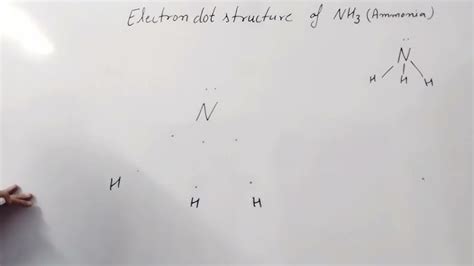 Electron dot structure of NH3 (Ammonia)
N
H H H
N
H H H